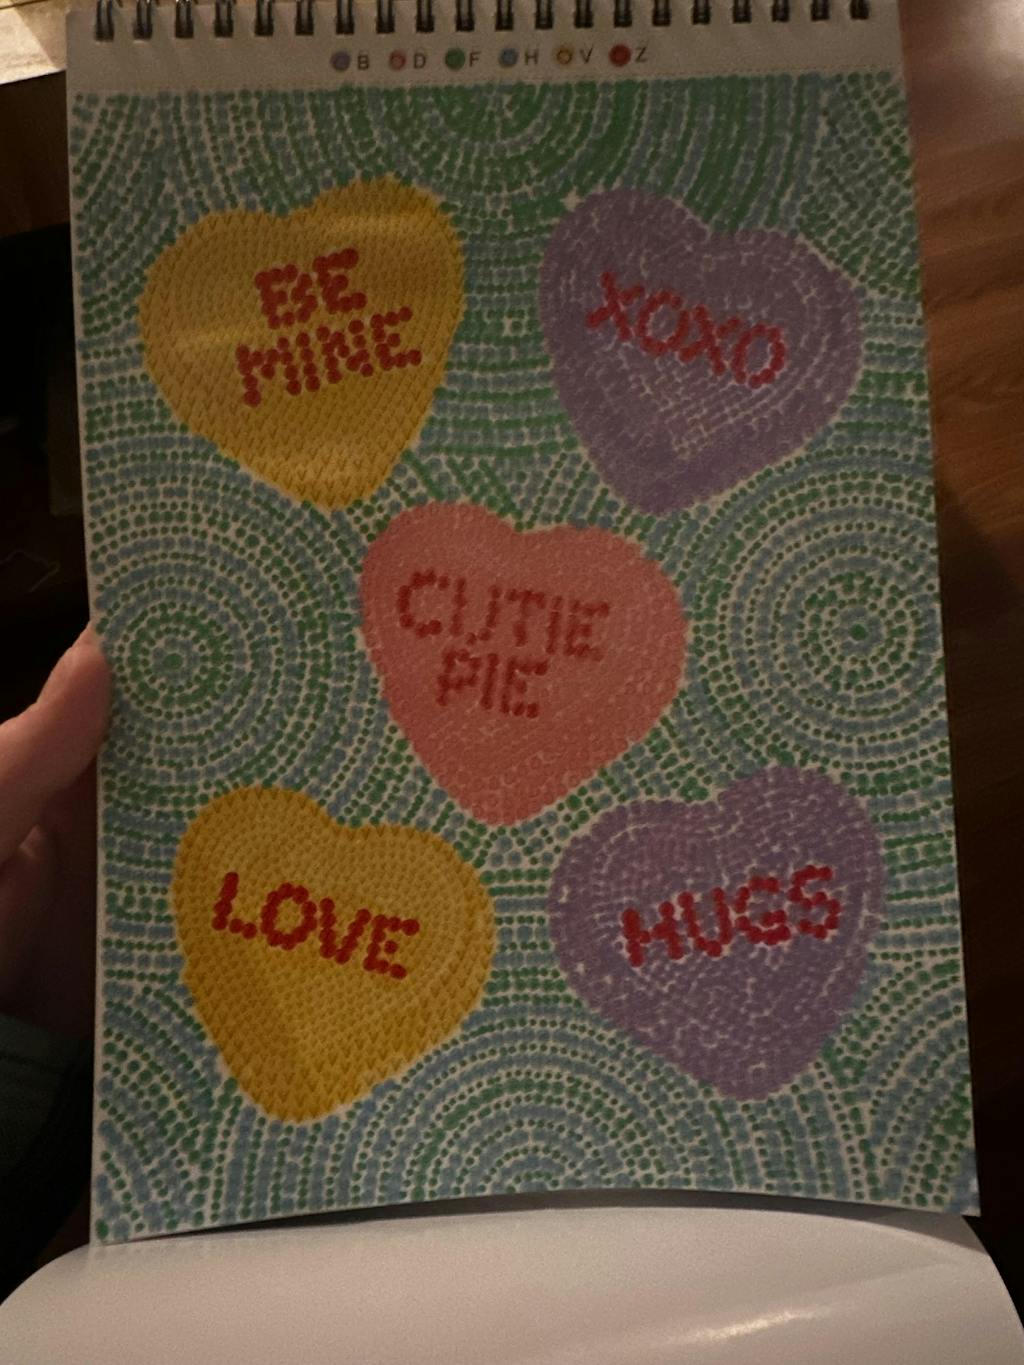 B D F H V Z
BE
MINE
XOXO
CUTIE
PIE
LOVE
HUGS